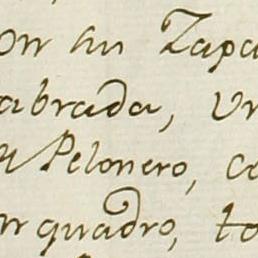 on su Zapa
abrada, un
Pelonero, co
n quadro, to